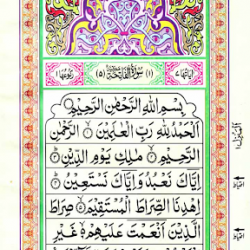 اٰیاتها ٧ (١) سُوْرَةُ الْفَاتِحَةِ مَكِّیَّةٌ (٥) رکوعها ١
بِسْمِ اللهِ الرَّحْمٰنِ الرَّحِیْمِ
اَلْحَمْدُ لِلّٰهِ رَبِّ الْعٰلَمِیْنَ ۝١ الرَّحْمٰنِ
الرَّحِیْمِ ۝٢ مٰلِكِ یَوْمِ الدِّیْنِ ۝٣
اِیَّاكَ نَعْبُدُ وَاِیَّاكَ نَسْتَعِیْنُ ۝٤
اِهْدِنَا الصِّرَاطَ الْمُسْتَقِیْمَ ۝٥ صِرَاطَ
الَّذِیْنَ اَنْعَمْتَ عَلَیْهِمْ ۝٦ غَیْرِ